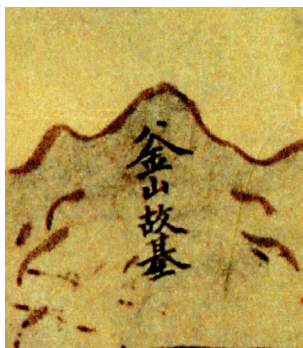 釜山故基